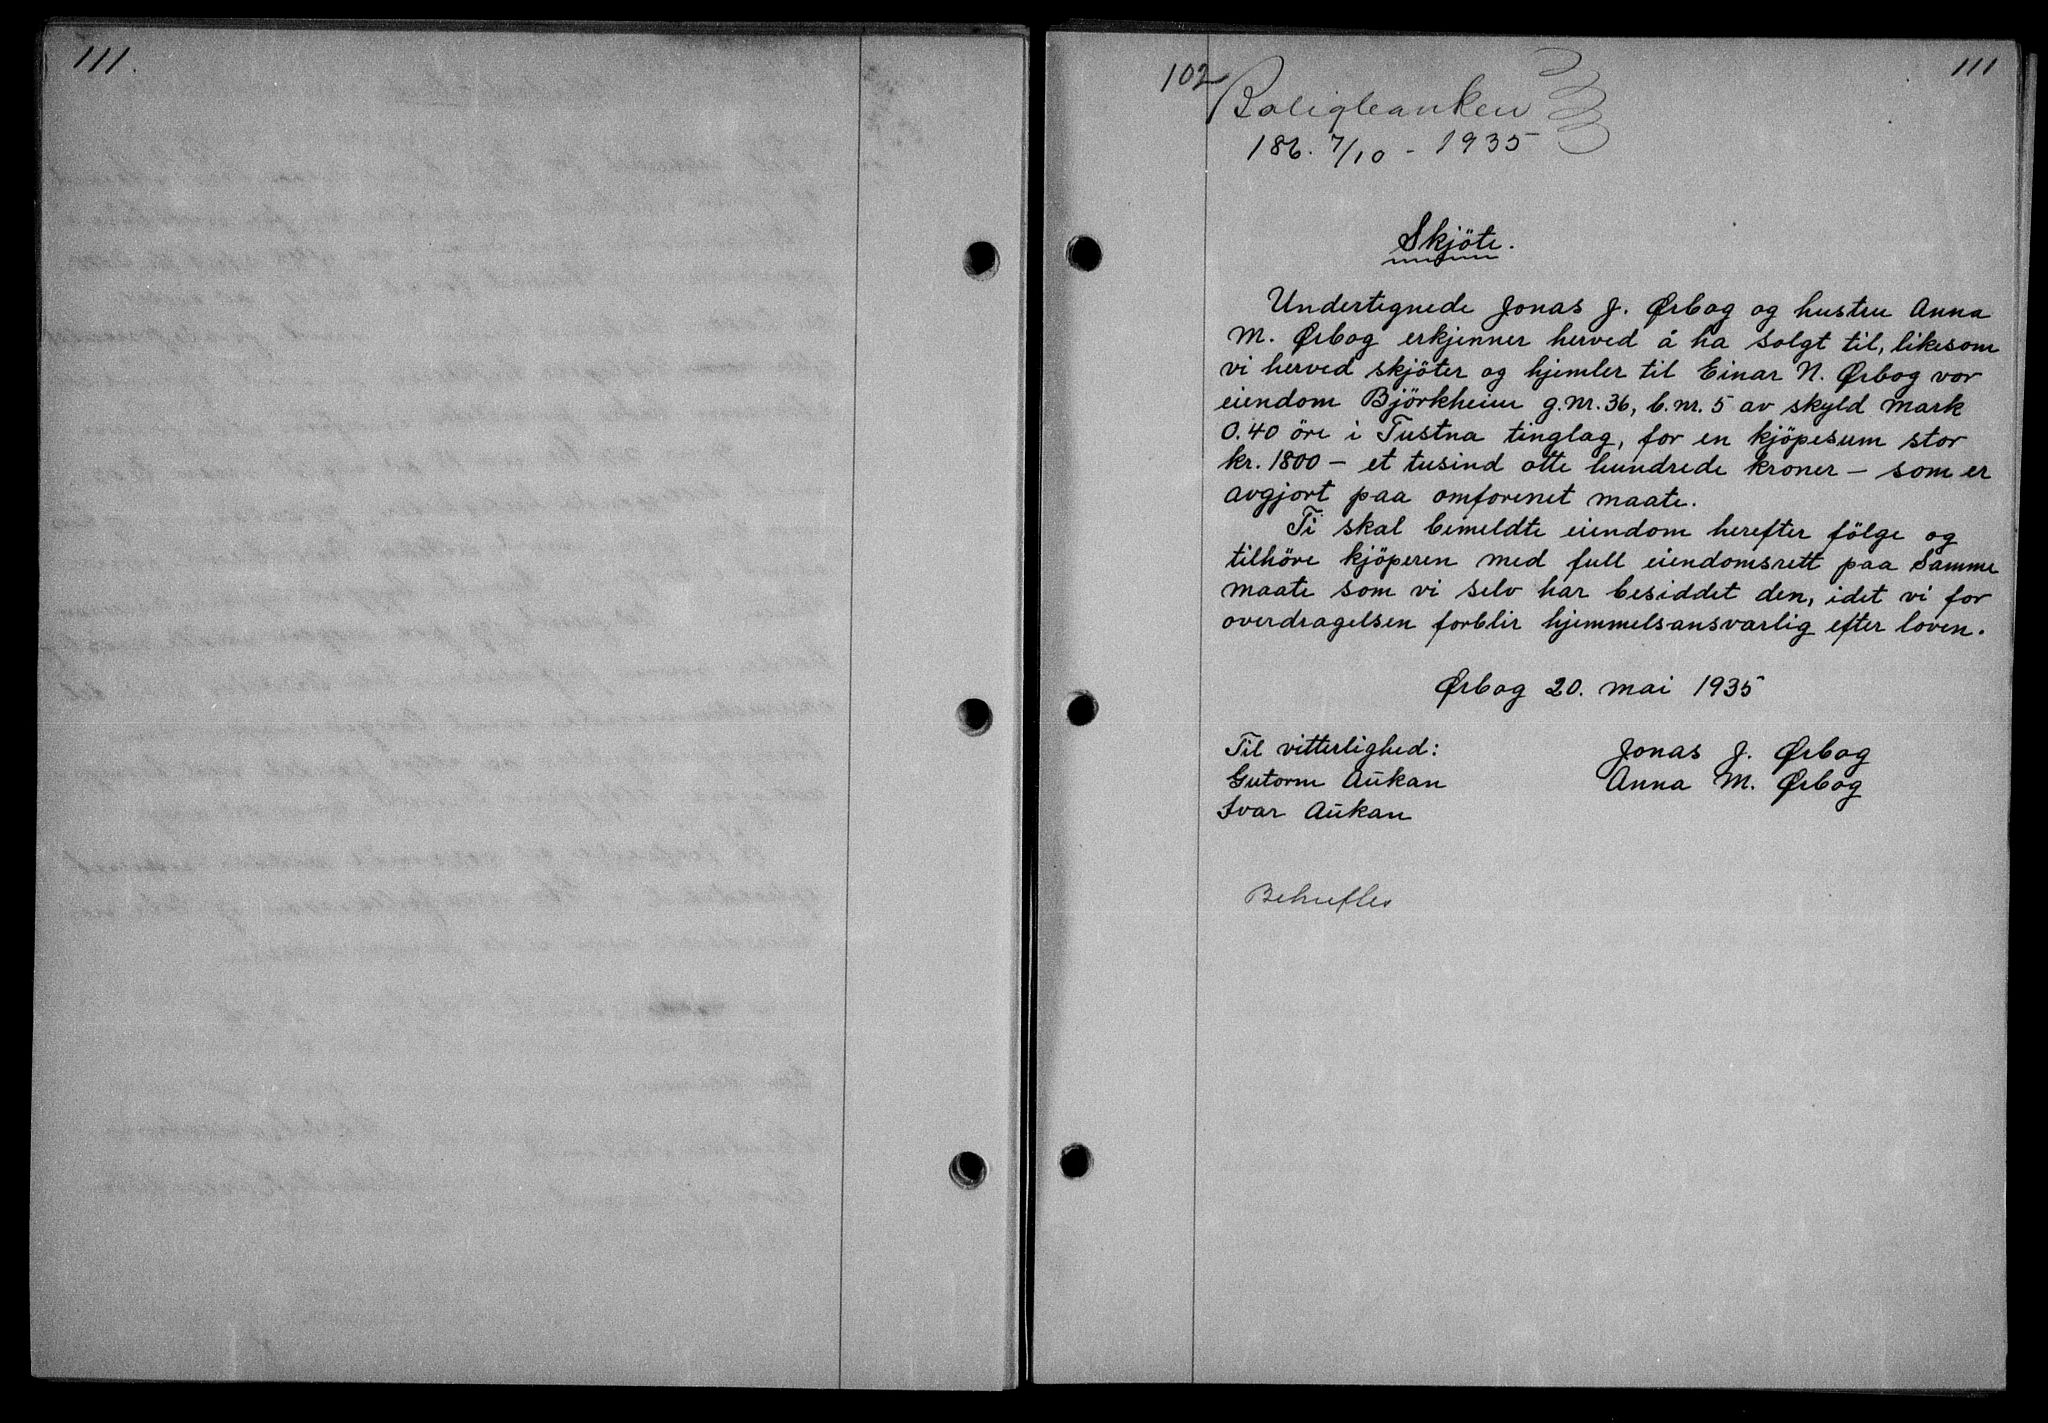 111.
111
102
Boligbanken
186. 7/10 - 1935
Skjöte.
Undertegnede Jonas J. Ørbog og hustru Anna
M. Ørbog erkjenner herved å ha solgt til, likesom
vi herved skjöter og hjemler til Einar N. Ørbog vor
eiendom Björkheim g.nr. 36, b.nr. 5 av skyld mark
0.40 öre i Tustna tinglag, for en kjöpesum stor
kr. 1800 - et tusind otte hundrede kroner - som er
avgjort paa omforenet maate.
Ti skal bemeldte eiendom herefter fölge og
tilhöre kjöperen med full eiendomsrett paa Samme
maate som vi selv har besiddet den, idet vi for
overdragelsen forblir hjemmelsansvarlig efter loven.
Ørbog 20. mai 1935
Til vitterlighed:
Jonas J. Ørbog
Gutorm Aukan
Anna M. Ørbog
Ivar Aukan